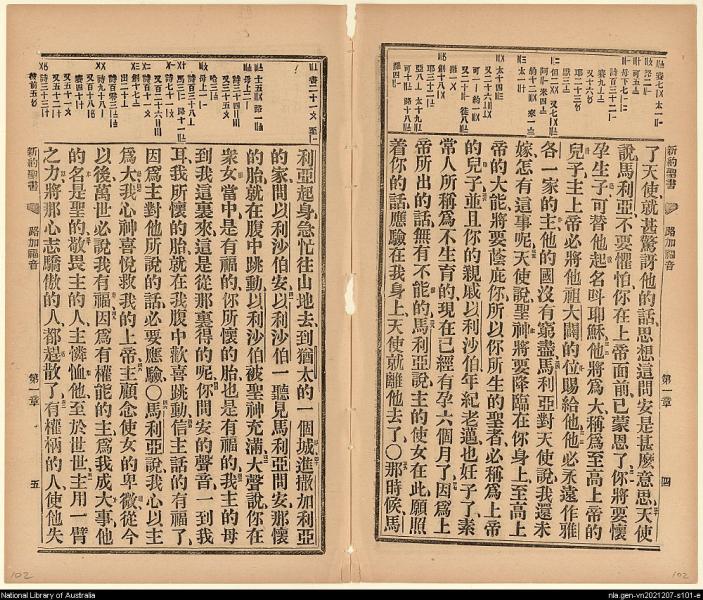 了天使、就甚驚訝他的話、思想這問安是甚麼意思、天使
說、馬利亞、不要懼怕、你在上帝面前已蒙恩了、你將要懷
孕生子、可替他起名呌耶穌、他將爲大、稱爲至高上帝的
兒子、主上帝必將他祖大闢的位賜給他、他必永遠作雅
各一家的主、他的國沒有窮盡、馬利亞對天使說、我還未
嫁、怎有這事呢、天使說、聖神將要降臨在你身上、至高上
帝的大能將要蔭庇你、所以你所生的聖者、必稱爲上帝
的兒子、並且你的親戚以利沙伯、年紀老邁、也妊子了、素
常人所稱爲不生育的、現在已經有孕六個月了、因爲上
帝所出的話、無有不能的、馬利亞說、主的使女在此、願照
着你的話、應驗在我身上、天使就離他去了○那時候、馬
新約聖書
路加福音
第一章
四
利亞起身、急忙往山地去、到猶太的一個城、進撒加利亞
的家、問以利沙伯安、以利沙伯一聽見馬利亞問安、那懷
的胎就在腹中跳動、以利沙伯被聖神充滿、大聲說、你在
衆女當中是有福的、你所懷的胎也是有福的、我主的母
到我這裏來、這是從那裏得的呢、你問安的聲音、一到我
耳、我所懷的胎、就在我腹中歡喜跳動、信主話的有福了、
因爲主對他所說的話、必要應驗○馬利亞說、我心以主
爲大、我心神喜悅救我的上帝、主顧念使女的卑微、從今
以後、萬世必說我有福、因爲有權能的主、爲我成大事、他
的名是聖的、敬畏主的人、主憐恤他、至於世世、主用一臂
之力、將那心志驕傲的人、都趕散了、有權柄的人、使他失
新約聖書
路加福音
第一章
五
102
102
National Library of Australia
nla.gen-vn2021207-s101-e